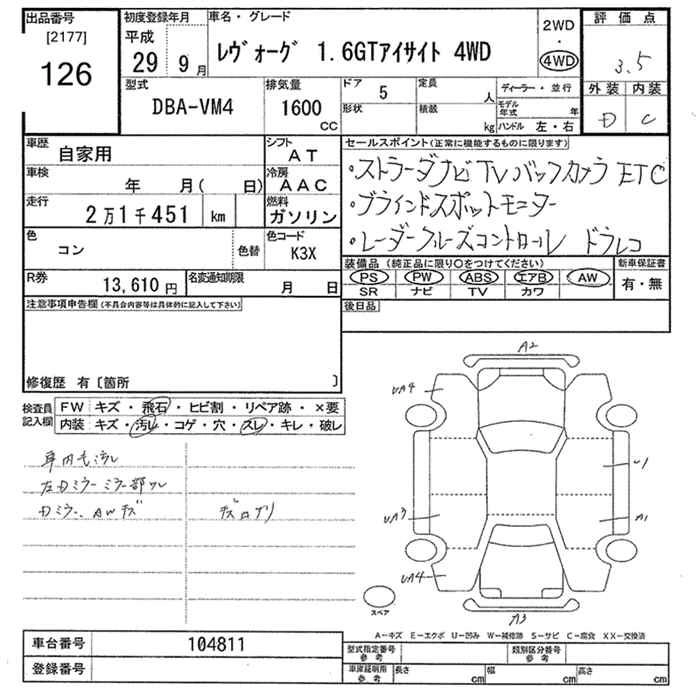 出品番号
[2177]
126
初度登録年月
平成
29 9月
車名・グレード
ﾚｳﾞｫｰｸﾞ 1.6GTｱｲｻｲﾄ 4WD
2WD
・
4WD
評価点
3.5
外装 内装
D C
型式
DBA-VM4
排気量
1600
CC
ドア 5
形状
定員 人
積載 kg
ディーラー・並行
モデル年式 年
ハンドル 左・右
車歴
自家用
シフト
AT
車検
年 月( 日)
冷房
AAC
走行
2万1千451 km
燃料
ガソリン
色
コン
色替
色コード
K3X
R券
13,610円
名変通知期限
月 日
セールスポイント(正常に機能するものに限ります)
・ストラーダナビ TV バックカメラ ETC
・ブラインドスポットモニター
・レーダークルーズコントロール ドラレコ
装備品(純正品に限り○をつけてください)
PS PW ABS エアB AW
SR ナビ TV カワ
新車保証書
有・無
後日品
注意事項申告欄(不具合内容等は具体的に記入して下さい)
修復歴 有〔箇所 〕
検査員記入欄
FW キズ・飛石・ヒビ割・リペア跡・×要
内装 キズ・汚レ・コゲ・穴・スレ・キレ・破レ
車内毛汚レ
左Dミラー ミラー部ワレ
Dミラー、AWキズ
A2
UA4
U1
UA3
A1
UA4
A3
スペア
A−キズ E−エクボ U−凹み W−補修跡 S−サビ C−腐食 XX−交換済
車台番号
104811
登録番号
型式指定番号
参考
類別区分番号
参考
車庫証明用
参考
長さ cm
幅 cm
高さ cm